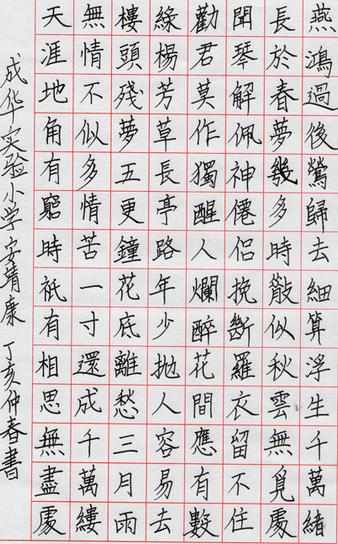 燕鴻過後鶯歸去細算浮生千萬緒
長於春夢幾多時散似秋雲無覓處
聞琴解佩神僊侶挽斷羅衣留不住
勸君莫作獨醒人爛醉花間應有數
綠楊芳草長亭路年少拋人容易去
樓頭殘夢五更鐘花底離愁三月雨
無情不似多情苦一寸還成千萬縷
天涯地角有窮時祇有相思無盡處
成华实验小学安靖康 丁亥仲春書